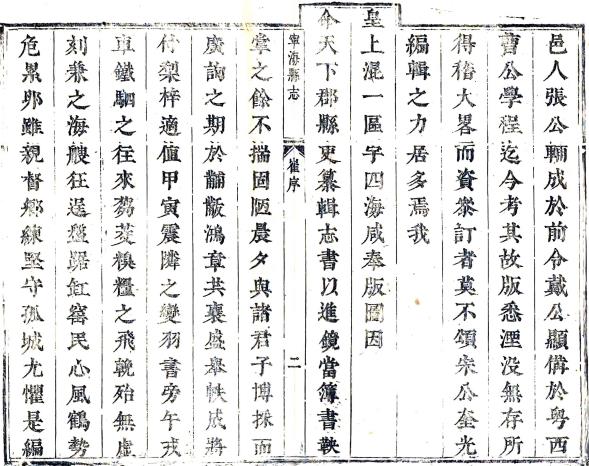 邑人張公輛成於前令戴公顯備於粤西
曹公學程迄今考其故版悉湮没無存所
得稽大畧而資衆訂者莫不頌宋公奎光
編輯之力居多焉我
皇上混一區宇四海咸奉版圖因
命天下郡縣吏纂輯志書以進鏡當簿書鞅
寧海縣志 崔序 二
掌之餘不揣固陋晨夕與諸君子博採而
廣詢之期於黼黻鴻章共襄盛舉帙成將
付梨梓適值甲寅震隣之變羽書旁午戎
車鐵駟之往來芻茭糗糧之飛輓殆無虛
刻兼之海艘狂逞盤踞缸窰民心風鶴勢
危累卵雖親督鄉練堅守孤城尤懼是編